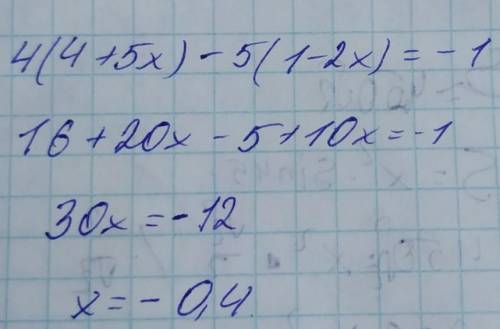 4(4+5x)-5(1-2x)=-1
16+20x-5+10x=-1
30x=-12
x=-0,4